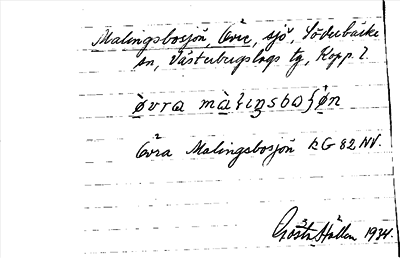 Malingsbosjön, Övre, sjö, Söderbärke
sn, Västerbergslags tg, Kopp. l.
òvra mà{iŋsbo{ön
Övra Malingsbosjön RG 82 NV.
Gösta Hallén 1934.